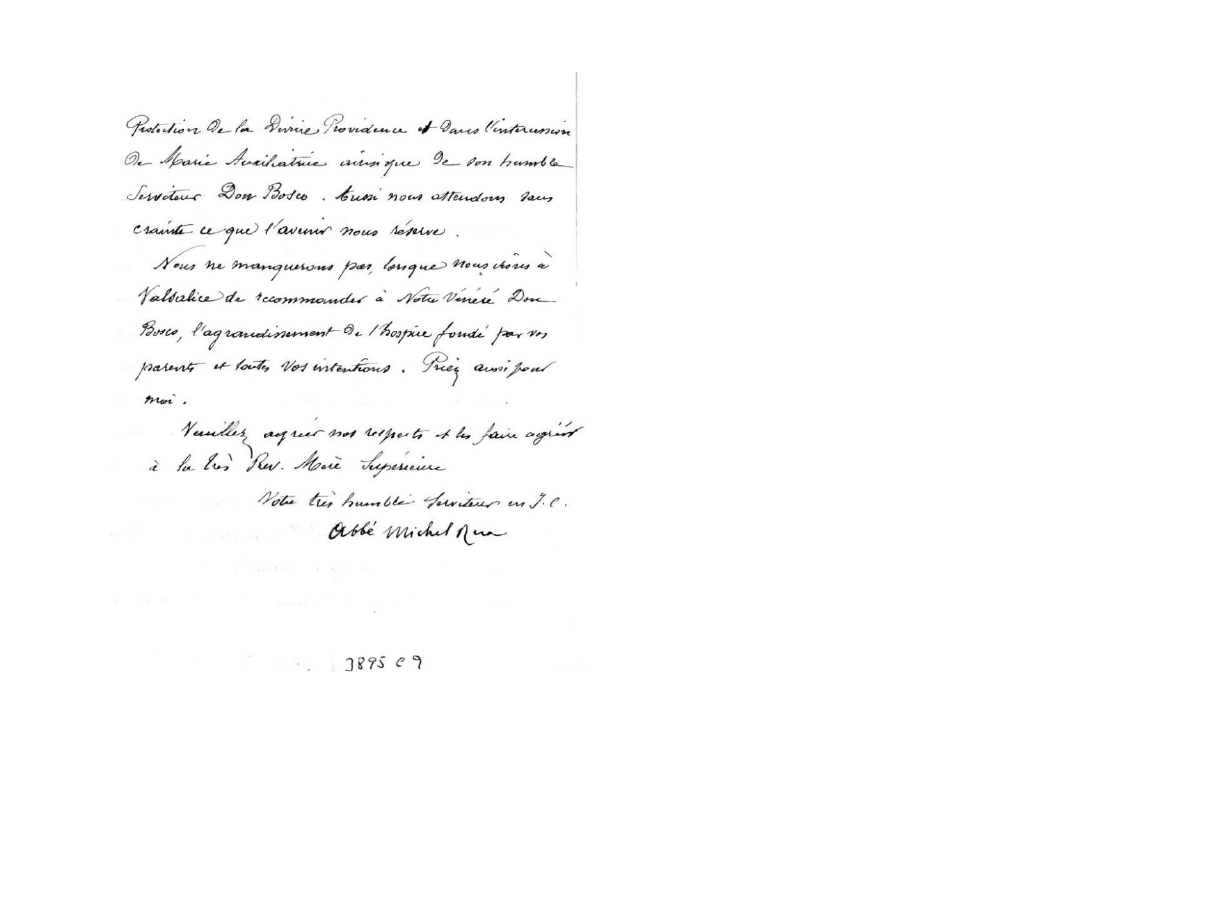 Protection de la Divine Providence et dans l'intercession
de Marie Auxiliatrice ainsi que de son humble
Serviteur Don Bosco. Aussi nous attendons sans
crainte ce que l'avenir nous réserve.
Nous ne manquerons pas, lorsque nous irons à
Valsalice de recommander à Notre Vénéré Don
Bosco, l'agrandissement de l'hospice fondé par vos
parents et toutes vos intentions. Priez aussi pour
moi.
Veuillez agréer nos respects et les faire agréer
à la très Rev. Mère Supérieure
Votre très humble Serviteur en J.C.
Abbé Michel Rua
3895 C 9